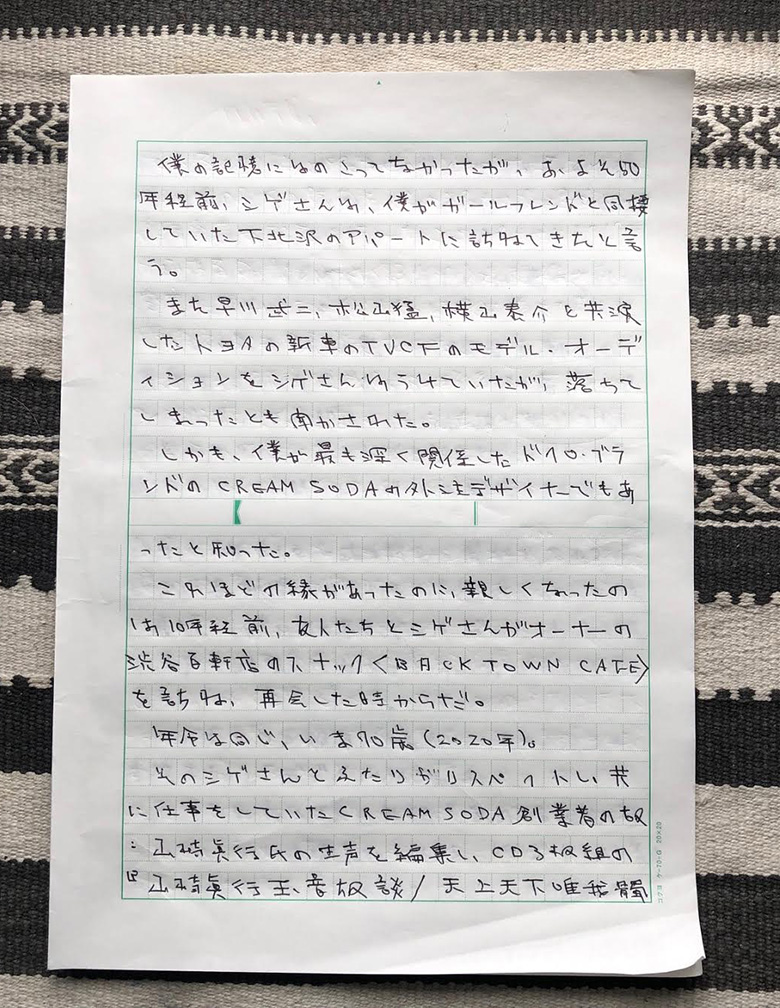 僕の記憶にはのこってなかったが、およそ50
年程前、シゲさんは、僕がガールフレンドと同棲
していた下北沢のアパートに訪ねてきたと言
う。
また早川武二、松山猛、横山泰介と共演
したトヨタの新車のTVCFのモデル・オーデ
ィションをシゲさんはうけていたが、落ちて
しまったとも聞かされた。
しかも、僕が最も深く関係したドクロ・ブラ
ンドのCREAM SODAの外注デザイナーでもあ
ったと知った。
これほどの縁があったのに、親しくなったの
は10年程前、友人たちとシゲさんがオーナーの
渋谷百軒店のスナック〈BACK TOWN CAFE〉
を訪ね、再会した時からだ。
年令は同じ、いま70歳(2020年)。
そのシゲさんとふたりがリスペクトし、共
に仕事をしていたCREAM SODA創業者の故
山崎眞行氏の生声を編集し、CD3枚組の
『山崎眞行 談/天上天下唯我髑
20×20